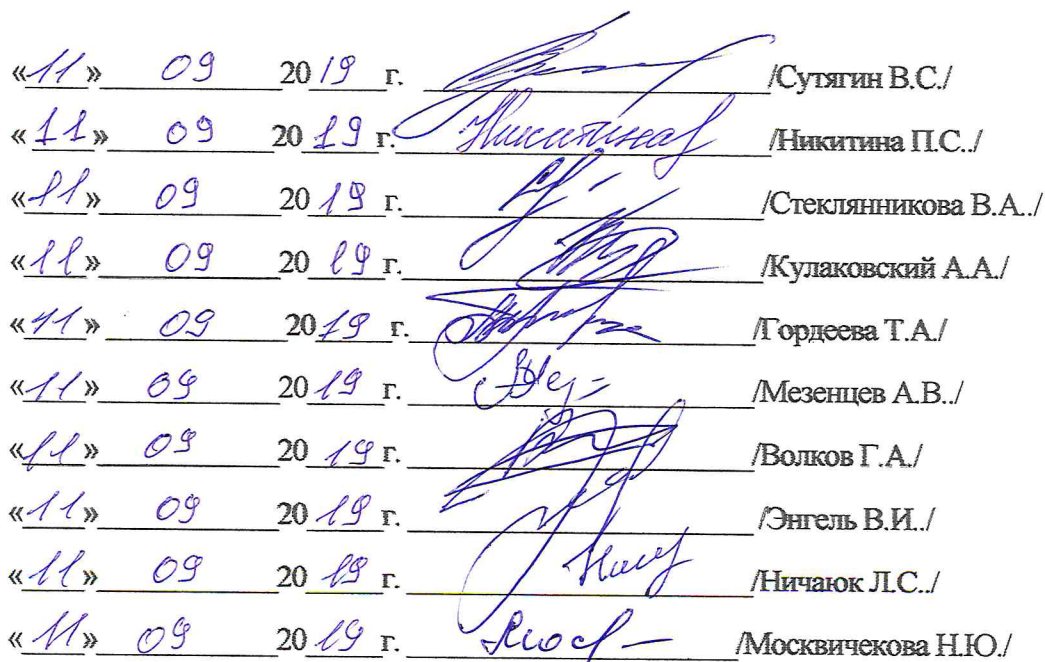 «11» 09 2019 г. /Сутягин В.С./
«11» 09 2019 г. Никитина /Никитина П.С../
«11» 09 2019 г. /Стеклянникова В.А../
«11» 09 2019 г. /Кулаковский А.А./
«11» 09 2019 г. /Гордеева Т.А./
«11» 09 2019 г. /Мезенцев А.В../
«11» 09 2019 г. /Волков Г.А./
«11» 09 2019 г. /Энгель В.И../
«11» 09 2019 г. /Ничаюк Л.С../
«11» 09 2019 г. /Москвичекова Н.Ю./